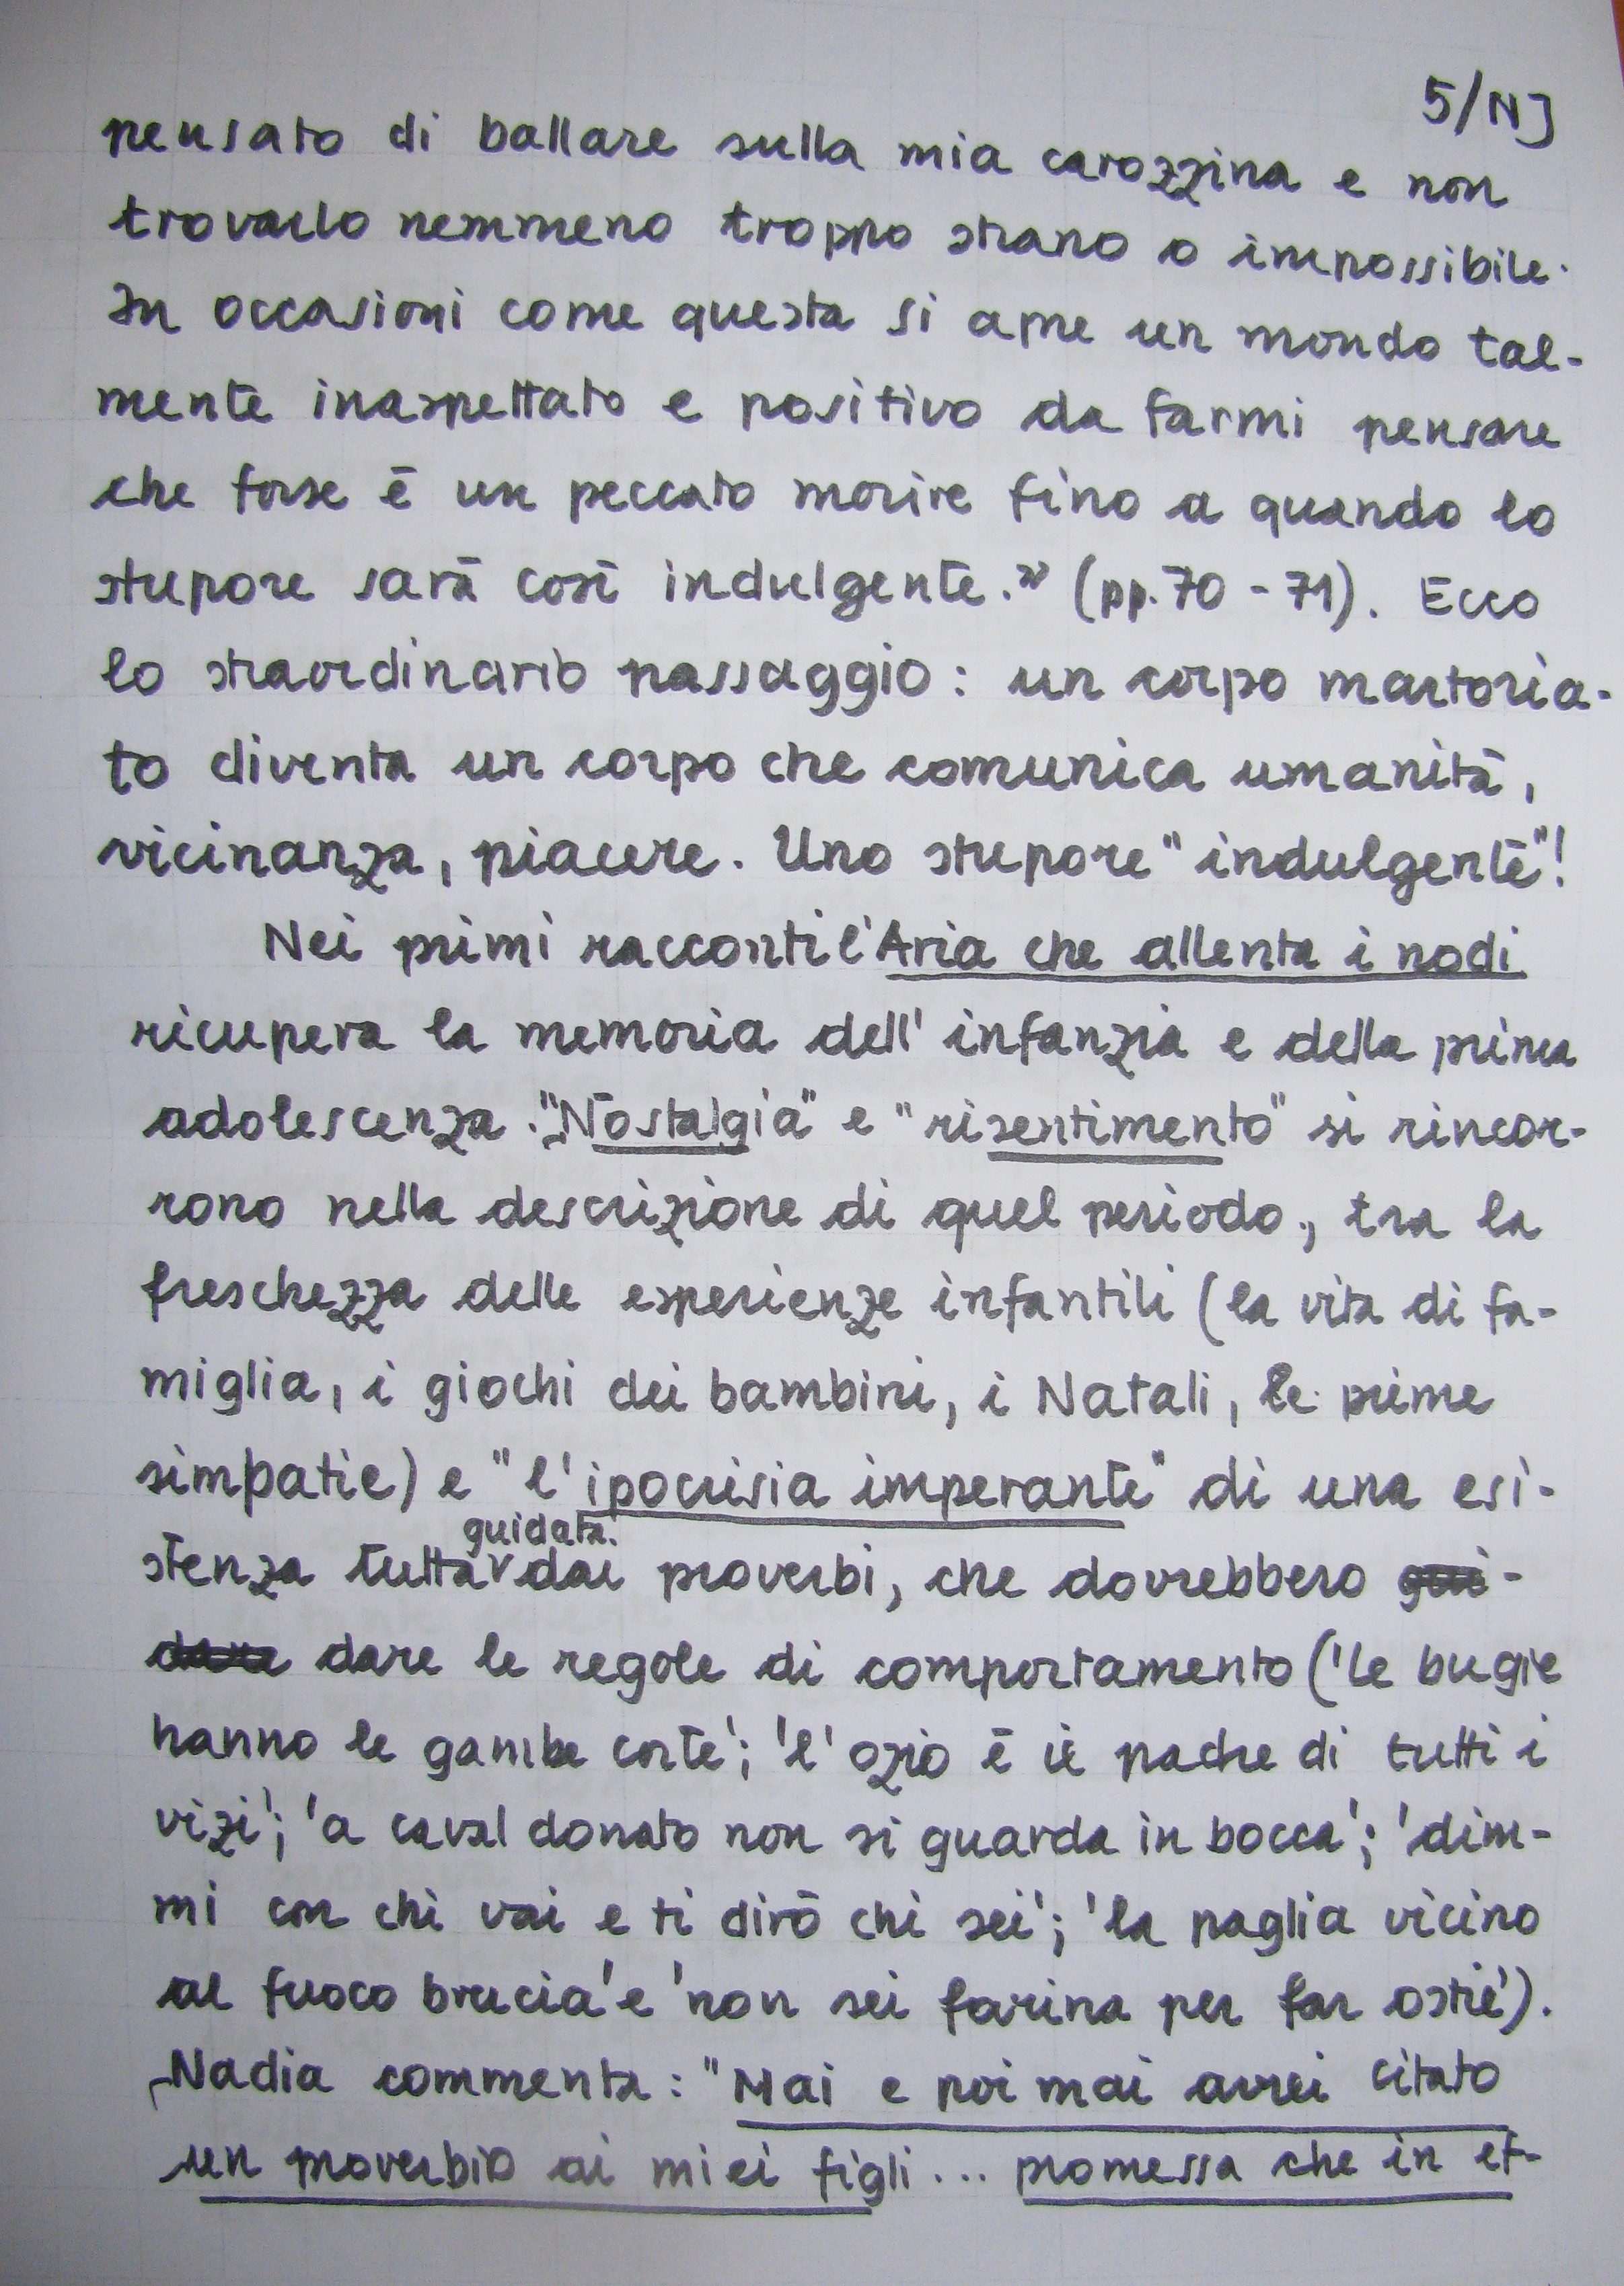 5/NJ
pensato di ballare sulla mia carozzina e non
trovarlo nemmeno troppo strano o impossibile.
In occasioni come questa si apre un mondo tal-
mente inaspettato e positivo da farmi pensare
che forse è un peccato morire fino a quando lo
stupore sarà così indulgente.» (pp. 70 - 71). Ecco
lo straordinario passaggio: un corpo martoria-
to diventa un corpo che comunica umanità,
vicinanza, piacere. Uno stupore "indulgente"!
Nei primi racconti l'Aria che allenta i nodi
ricupera la memoria dell'infanzia e della prima
adolescenza. "Nostalgia" e "risentimento" si rincor-
rono nella descrizione di quel periodo, tra la
freschezza delle esperienze infantili (la vita di fa-
miglia, i giochi dei bambini, i Natali, le prime
simpatie) e "l'ipocrisia imperante" di una esi-
stenza tutta guidata dai proverbi, che dovrebbero gui-
dare dare le regole di comportamento ('le bugie
hanno le gambe corte'; 'l'ozio è il padre di tutti i
vizi'; 'a caval donato non si guarda in bocca'; 'dim-
mi con chi vai e ti dirò chi sei'; 'la paglia vicino
al fuoco brucia' e 'non sei farina per far ostie').
Nadia commenta: "Mai e poi mai avrei citato
un proverbio ai miei figli... promessa che in ef-